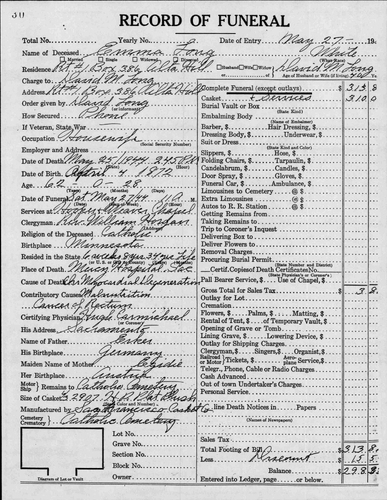 RECORD OF FUNERAL
Total No. Yearly No. Date of Entry May 27 19
Name of Deceased Emma Long White
Married Single Widowed Divorced Husband Wife Widow of David M. Long
Residence Rt #1 Box 386 Alta
Charge to David M. Long Age of Husband or Wife (if living)
Rt #1 Box 386 Alta
Order given by David Long
How Secured Phone
If Veteran, State War
Occupation Housewife
(Social Security Number)
Employer and Address
Date of Death May 25, 1944 2:45
Date of Birth April 4 1872
Age 62 0 28
Date of Funeral Sat May 27/44
Services at Chapel
Clergyman Rev. William Horgan
Religion of the Deceased Catholic
Birthplace Minnesota
Resided in the State
Place of Death Mercy Hospital, Sac
Cause of Death Myocardial Degeneration
Contributory Causes Malnutrition
Cancer of Rectum
Certifying Physician Carmichael
His Address Sacramento
Name of Father
His Birthplace Germany
Maiden Name of Mother
Her Birthplace Austria
Motor Ship Remains to Catholic Cemetery
Size of Casket
Manufactured by San Francisco Casket Co
Cemetery Crematory Catholic Cemetery
Lot No.
Grave No.
Section No.
Block No.
Owner
Diagram of Lot or Vault
Complete Funeral (except outlays) $ 313 8
Casket & Services 310 0
Burial Vault or Box
(State Kind)
Embalming Body
(Name of Embalmer)
Barber, $ Hair Dressing, $
Dressing Body, $ Underwear, $
Suit or Dress
(State Kind and Color)
Slippers, $ Hose, $
Folding Chairs, $ Tarpaulin, $
Candelabrum, $ Candles, $
Door Spray, $ Gloves, $
Funeral Car, $ Ambulance, $
Limousines to Cemetery @ $
Extra Limousines @ $
Autos to R. R. Station @ $
Getting Remains from
Taking Remains to
Trip to Coroner's Inquest
Delivering Box to
Deliver Flowers to
Removal Charges
Procuring Burial Permit
(State Number and District)
Certif. Copies of Death Certificate No.
(State Physician's or Coroner's)
Pall Bearer Service, $ Use of Chapel, $
Gross Total for Sales Tax $ 3 8
Outlay for Lot
Cremation
Flowers, $ Palms, $ Matting, $
Rental of Tent, $ of Temporary Vault, $
Opening of Grave or Tomb
Lining Grave, $ Lowering Device, $
Outlay for Shipping Charges
Clergyman, $ Singers, $ Organist, $
Railroad Tickets, $ Aero plane Service, $
Telegr., Phone, Cable or Radio Charges
Cash Advanced
Out of town Undertaker's Charges
Personal Service
Line Death Notices in Papers
(Names of Newspapers)
Sales Tax
Total Footing of Bill $ 313 8
Less Discount 15 5
Balance $ 298 3
Entered into Ledger, page or below.